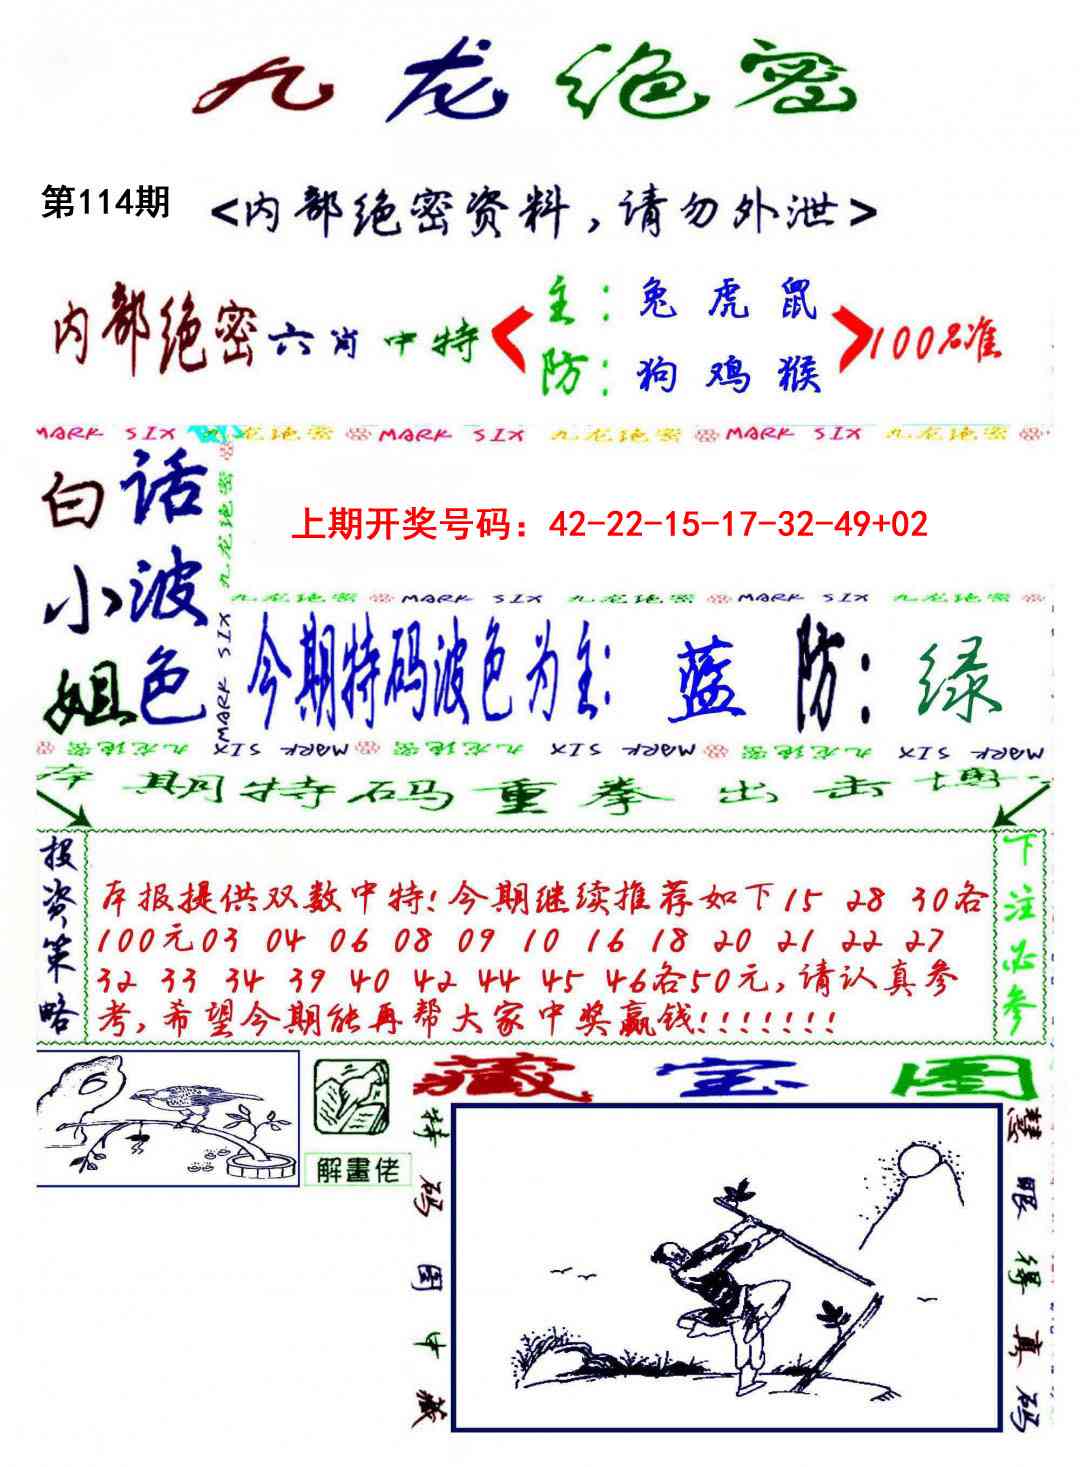 九龙绝密
第114期
<内部绝密资料,请勿外泄>
内部绝密六肖中特
主:兔虎鼠
防:狗鸡猴
100%准
MARK SIX 九龙绝密 MARK SIX 九龙绝密 MARK SIX 九龙绝密
白小姐
话波色
九龙绝密
MARK SIX
上期开奖号码：42-22-15-17-32-49+02
九龙绝密 MARK SIX 九龙绝密 MARK SIX 九龙绝密
今期特码波色为主: 蓝 防: 绿
九龙绝密 MARK SIX 九龙绝密 MARK SIX 九龙绝密 MARK SIX
本期特码重拳出击博
投资策略
本报提供双数中特!今期继续推荐如下15 28 30各
100元03 04 06 08 09 10 16 18 20 21 22 27
32 33 34 39 40 42 44 45 46各50元,请认真参
考,希望今期能再帮大家中奖赢钱!!!!!!!
下注必参
解畫佬
藏宝图
特码图中藏
慧眼得真码